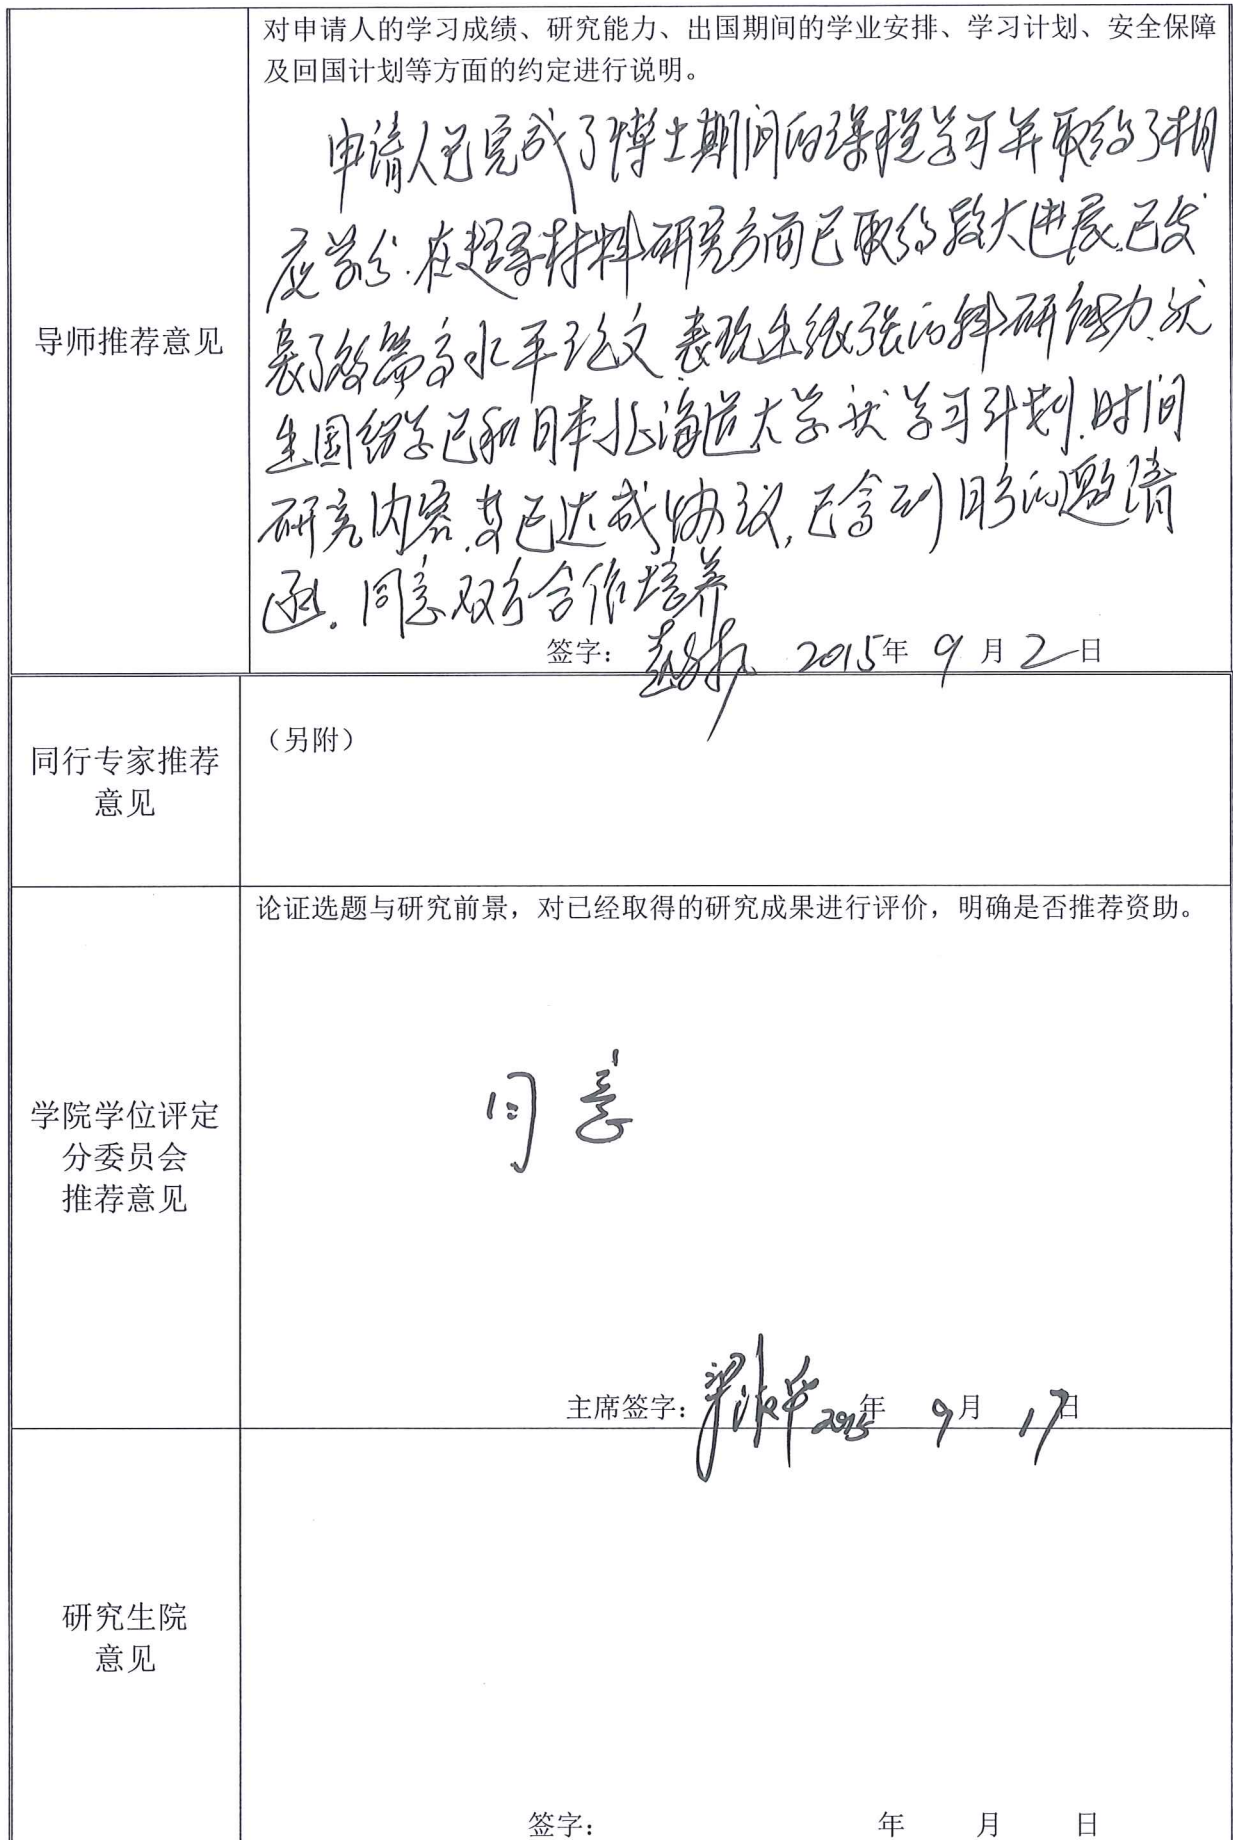 对申请人的学习成绩、研究能力、出国期间的学业安排、学习计划、安全保障
及回国计划等方面的约定进行说明。
导师推荐意见
申请人已完成了博士期间的课程学习并取得了相
应学分.在超导材料研究方面已取得较大进展.已发
表了数篇高水平论文.表现出很强的科研能力.就
出国留学已和日本北海道大学就学习计划.时间
研究内容.等已达成协议,已拿到日方的邀请
函.同意双方合作培养
签字: 2015年 9 月 2 日
同行专家推荐
意见
（另附）
论证选题与研究前景，对已经取得的研究成果进行评价，明确是否推荐资助。
学院学位评定
分委员会
推荐意见
同意
主席签字: 2015年 9月 17日
研究生院
意见
签字: 年 月 日